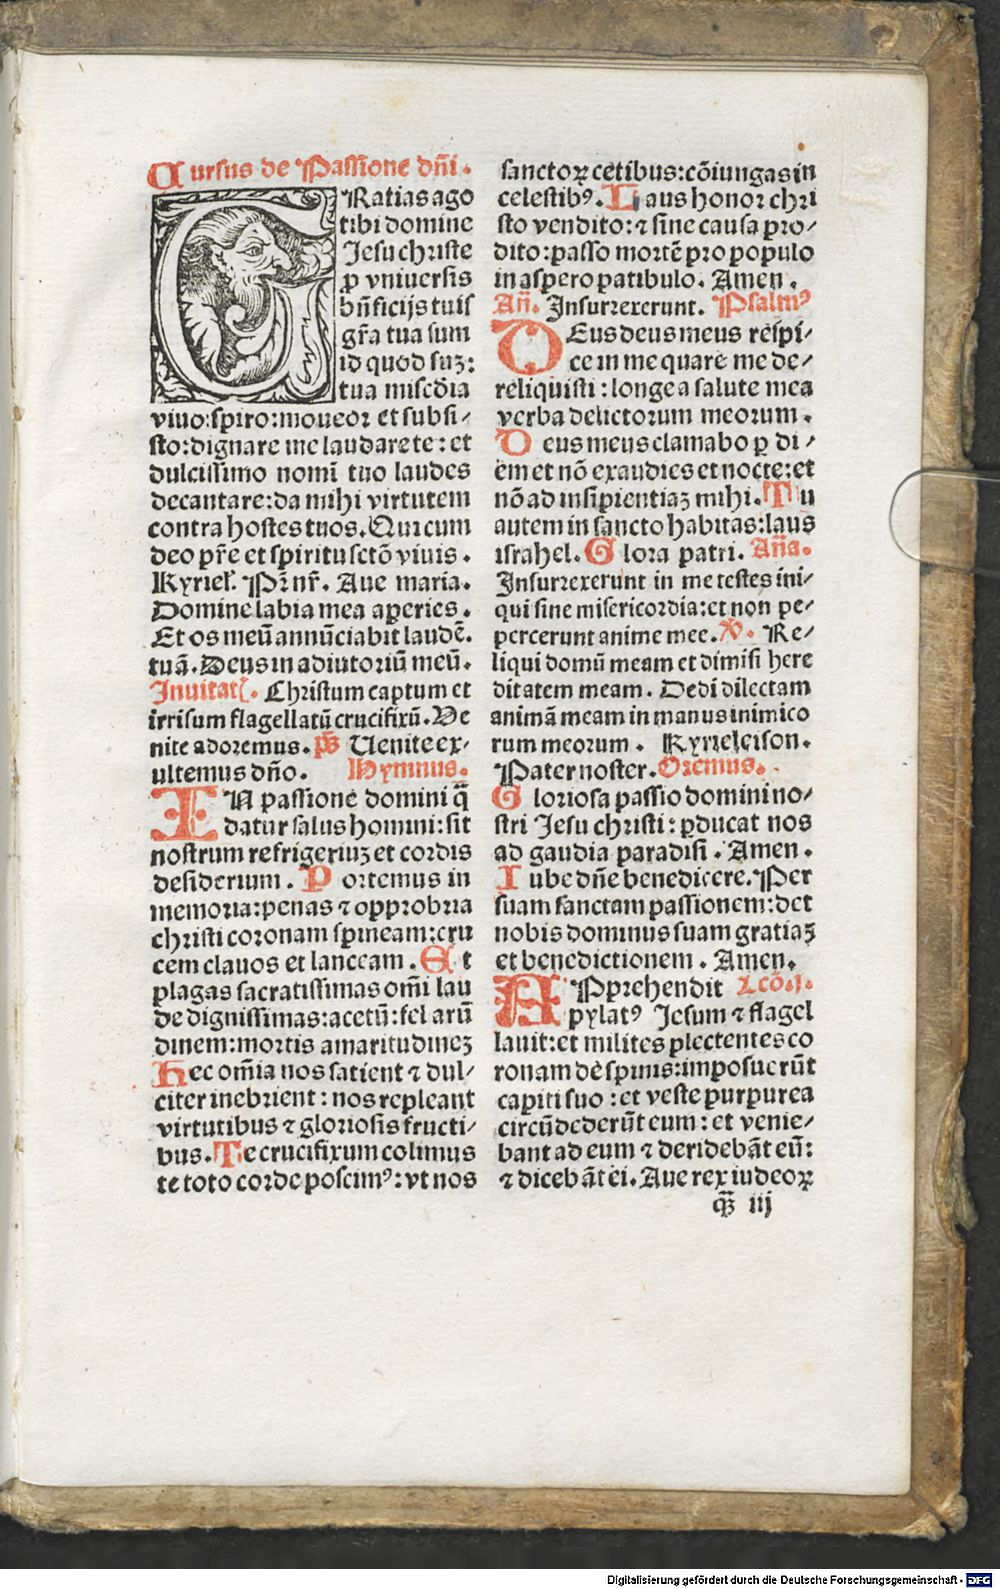 Cursus de Passione dñi.
GRatias ago
tibi domine
Jesu christe
ꝑ vniuersis
bñficijs tuis
gr̃a tua sum
id quod suꝫ:
tua misc̃dia
viuo:spiro:moueor et subsi⸗
sto:dignare me laudare te: et
dulcissimo nomĩ tuo laudes
decantare:da mihi virtutem
contra hostes tuos.Qui cum
deo pr̃e et spiritu sctõ viuis.
Kyriel̃. Pr̃ nr̃. Aue maria.
Domine labia mea aperies.
Et os meũ annũciabit laudẽ.
tuã.Deus in adiutoriũ meũ.
Inuitat̃. Christum captum et
irrisum flagellatũ crucifixũ.Ve
nite adoremus. p̃s Uenite ex⸗
ultemus dño. Hymnus.
IN passione domini q̃
datur salus homini: sit
nostrum refrigeriuꝫ et cordis
desiderium. Portemus in
memoria:penas ⁊ opprobria
christi coronam spineam:cru
cem clauos et lanceam. Et
plagas sacratissimas om̃i lau
de dignissimas:acetũ:fel arũ
dinem:mortis amaritudineꝫ
Hec om̃ia nos satient ⁊ dul⸗
citer inebrient: nos repleant
virtutibus ⁊ gloriosis fructi⸗
bus.Te crucifixum colimus
te toto corde poscimꝰ: vt nos
sanctoꝝ cetibus:cõiungas in
celestibꝰ. Laus honor chri
sto vendito:⁊ sine causa pro⸗
dito:passo mortẽ pro populo
in aspero patibulo. Amen.
Añ. Insurrexerunt. Psalmꝰ
DEus deus meus respi⸗
ce in me quare me de⸗
reliquisti: longe a salute mea
verba delictorum meorum.
Deus meus clamabo ꝑ di⸗
em et nõ exaudies et nocte:et
nõ ad insipientiaꝫ mihi. Tu
autem in sancto habitas:laus
israhel. Glora patri. Añа.
Insurrexerunt in me testes ini⸗
qui sine misericordia:et non pe⸗
percerunt anime mee. ℣. Re⸗
liqui domũ meam et dimisi here
ditatem meam. Dedi dilectam
animã meam in manus inimico
rum meorum. Kyrieleison.
Pater noster. Oremus.
Gloriosa passio domini no⸗
stri Jesu christi: ꝑducat nos
ad gaudia paradisi. Amen.
Iube dñe benedicere. Per
suam sanctam passionem:det
nobis dominus suam gratiaꝫ
et benedictionem. Amen.
APprehendit Lcõ.j.
pylatꝰ Jesum ⁊ flagel
lauit:et milites plectentes co
ronam de spinis:imposuerũt
capiti suo: et veste purpurea
circũdederũt eum: et venie⸗
bant ad eum ⁊ deridebãt eũ:
⁊ dicebãt ei. Aue rex iudeoꝝ
qꝫ iij
Digitalisierung gefördert durch die Deutsche Forschungsgemeinschaft - DFG